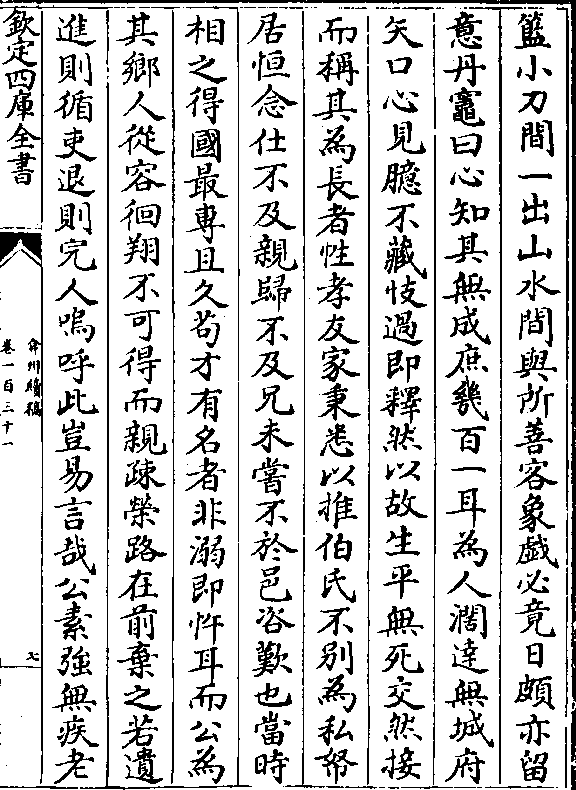 籃小刀間一出山水間與所善客象戲必竟日頗亦留
意丹竈曰心知其無成庶幾百一耳為人濶達無城府
矢口心見臆不藏忮過即釋然以故生平無死交然接
而稱其為長者性孝友家秉悉以推伯氏不别為私帑
居恒念仕不及親歸不及兄未嘗不於邑咨歎也當時
相之得國最專且久茍才有名者非溺即忤耳而公為
其鄉人從容徊翔不可得而親疎榮路在前棄之若遺
進則循吏退則完人嗚呼此豈易言哉公素強無疾老
欽定四庫全書
弇州續稿
卷一百三十一
七